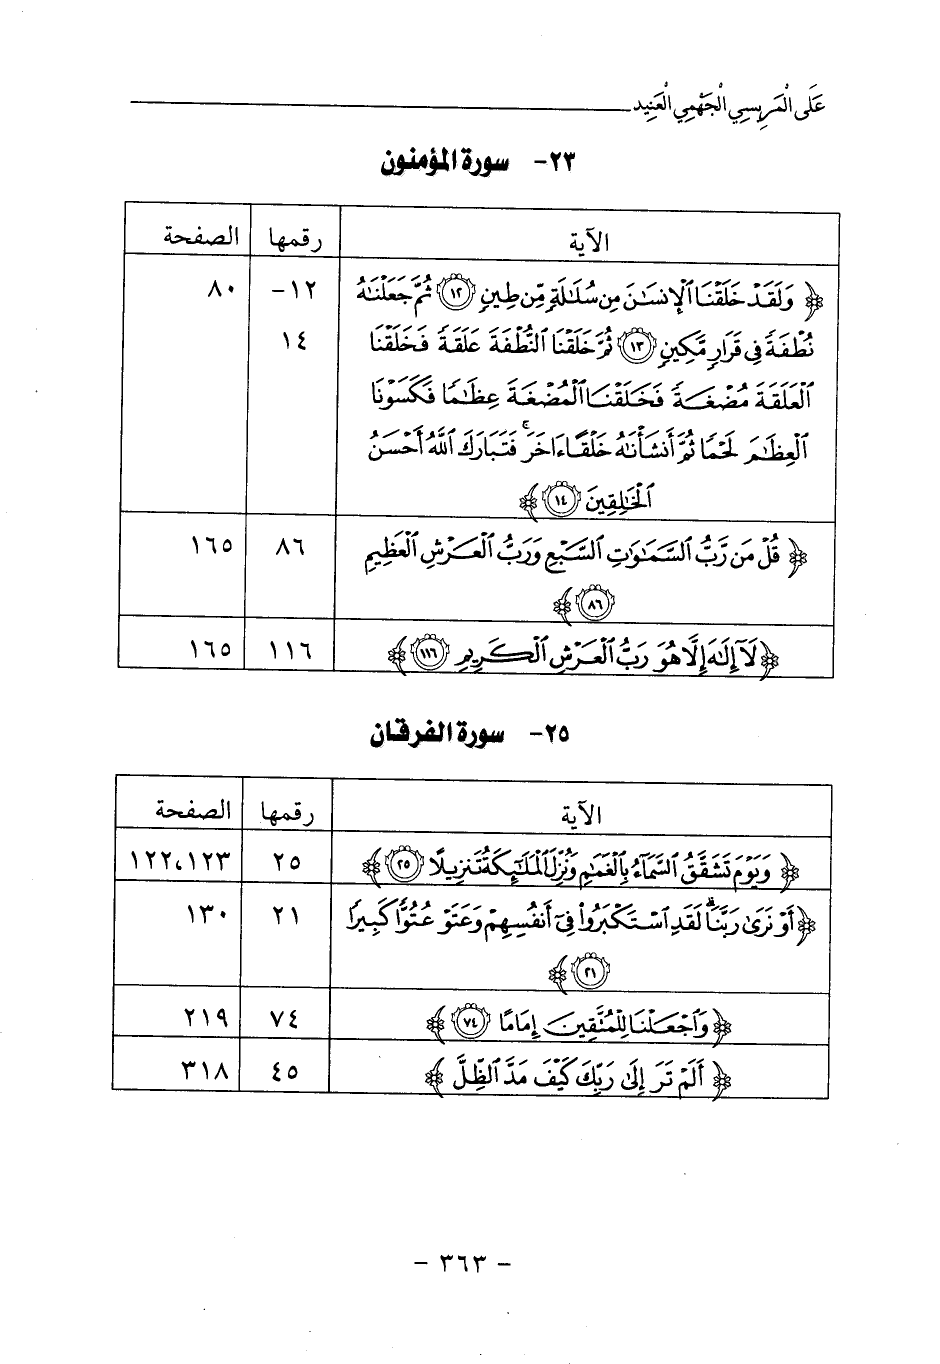 عَلَى الْمَرِيسِي الْجَهْمِي الْعَنِيد
٢٣- سورة المؤمنون
الآية رقمها الصفحة
﴿ وَلَقَدْ خَلَقْنَا ٱلْإِنسَٰنَ مِن سُلَٰلَةٍ مِّن طِينٍ ١٢ ثُمَّ جَعَلْنَٰهُ ١٢- ٨٠
نُطْفَةً فِى قَرَارٍ مَّكِينٍ ١٣ ثُمَّ خَلَقْنَا ٱلنُّطْفَةَ عَلَقَةً فَخَلَقْنَا ١٤
ٱلْعَلَقَةَ مُضْغَةً فَخَلَقْنَا ٱلْمُضْغَةَ عِظَٰمًا فَكَسَوْنَا
ٱلْعِظَٰمَ لَحْمًا ثُمَّ أَنشَأْنَٰهُ خَلْقًا ءَاخَرَ ۚ فَتَبَارَكَ ٱللَّهُ أَحْسَنُ
ٱلْخَٰلِقِينَ ١٤ ﴾
﴿ قُلْ مَن رَّبُّ ٱلسَّمَٰوَٰتِ ٱلسَّبْعِ وَرَبُّ ٱلْعَرْشِ ٱلْعَظِيمِ ٨٦ ١٦٥
٨٦ ﴾
﴿ لَآ إِلَٰهَ إِلَّا هُوَ رَبُّ ٱلْعَرْشِ ٱلْكَرِيمِ ١١٦ ﴾ ١١٦ ١٦٥
٢٥- سورة الفرقان
الآية رقمها الصفحة
﴿ وَيَوْمَ تَشَقَّقُ ٱلسَّمَآءُ بِٱلْغَمَٰمِ وَنُزِّلَ ٱلْمَلَٰٓئِكَةُ تَنزِيلًا ٢٥ ﴾ ٢٥ ١٢٢،١٢٣
﴿ أَوْ نَرَىٰ رَبَّنَا ۗ لَقَدِ ٱسْتَكْبَرُوا۟ فِىٓ أَنفُسِهِمْ وَعَتَوْ عُتُوًّا كَبِيرًا ٢١ ١٣٠
٢١ ﴾
﴿ وَٱجْعَلْنَا لِلْمُتَّقِينَ إِمَامًا ٧٤ ﴾ ٧٤ ٢١٩
﴿ أَلَمْ تَرَ إِلَىٰ رَبِّكَ كَيْفَ مَدَّ ٱلظِّلَّ ﴾ ٤٥ ٣١٨
- ٣٦٣ -